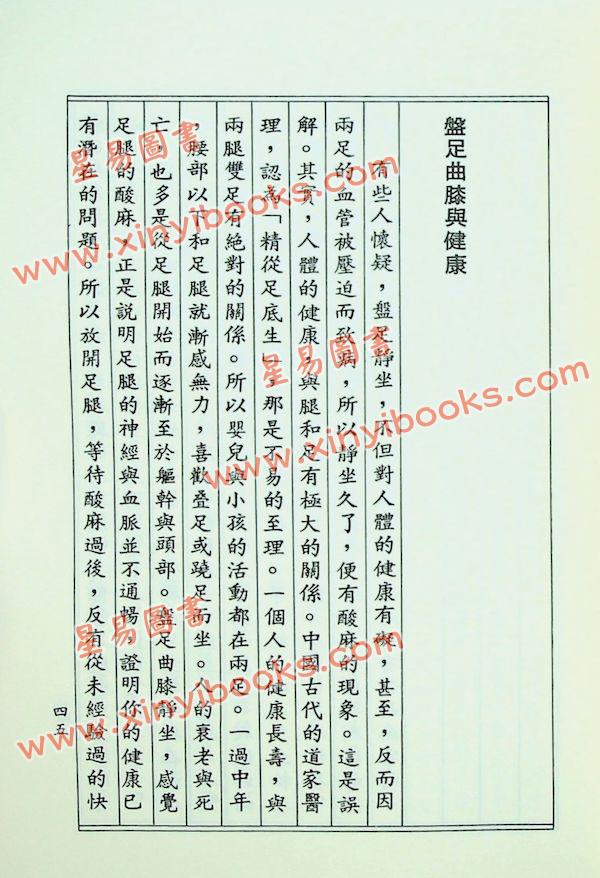 盤足曲膝與健康
有些人懷疑，盤足靜坐，不但對人體的健康有礙，甚至，反而因
兩足的血管被壓迫而致病，所以靜坐久了，便有酸麻的現象。這是誤
解。其實，人體的健康，與腿和足有極大的關係。中國古代的道家醫
理，認為「精從足底生」，那是不易的至理。一個人的健康長壽，與
兩腿雙足有絕對的關係。所以嬰兒與小孩的活動都在兩足。一過中年
，腰部以下和足腿就漸感無力，喜歡叠足或蹺足而坐。人的衰老與死
亡，也多是從足腿開始而逐漸至於軀幹與頭部。盤足曲膝靜坐，感覺
足腿的酸麻，正是説明足腿的神經與血脈並不通暢，證明你的健康已
有潛在的問題。所以放開足腿，等待酸麻過後，反有從未經驗過的快
四五
星易圖書
www.xinyibooks.com
星易圖書
www.xinyibooks.com
星易圖書
www.xinyibooks.com